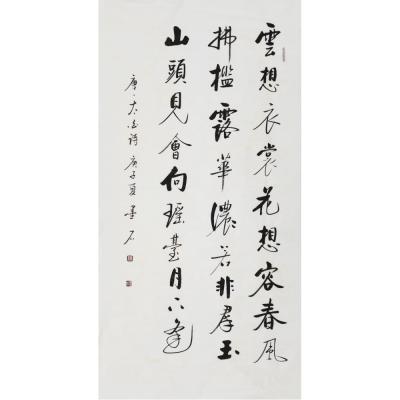 雲想衣裳花想容春風
拂檻露華濃若非羣玉
山頭見會向瑤臺月下逢
唐·太白詩 庚子夏 墨石